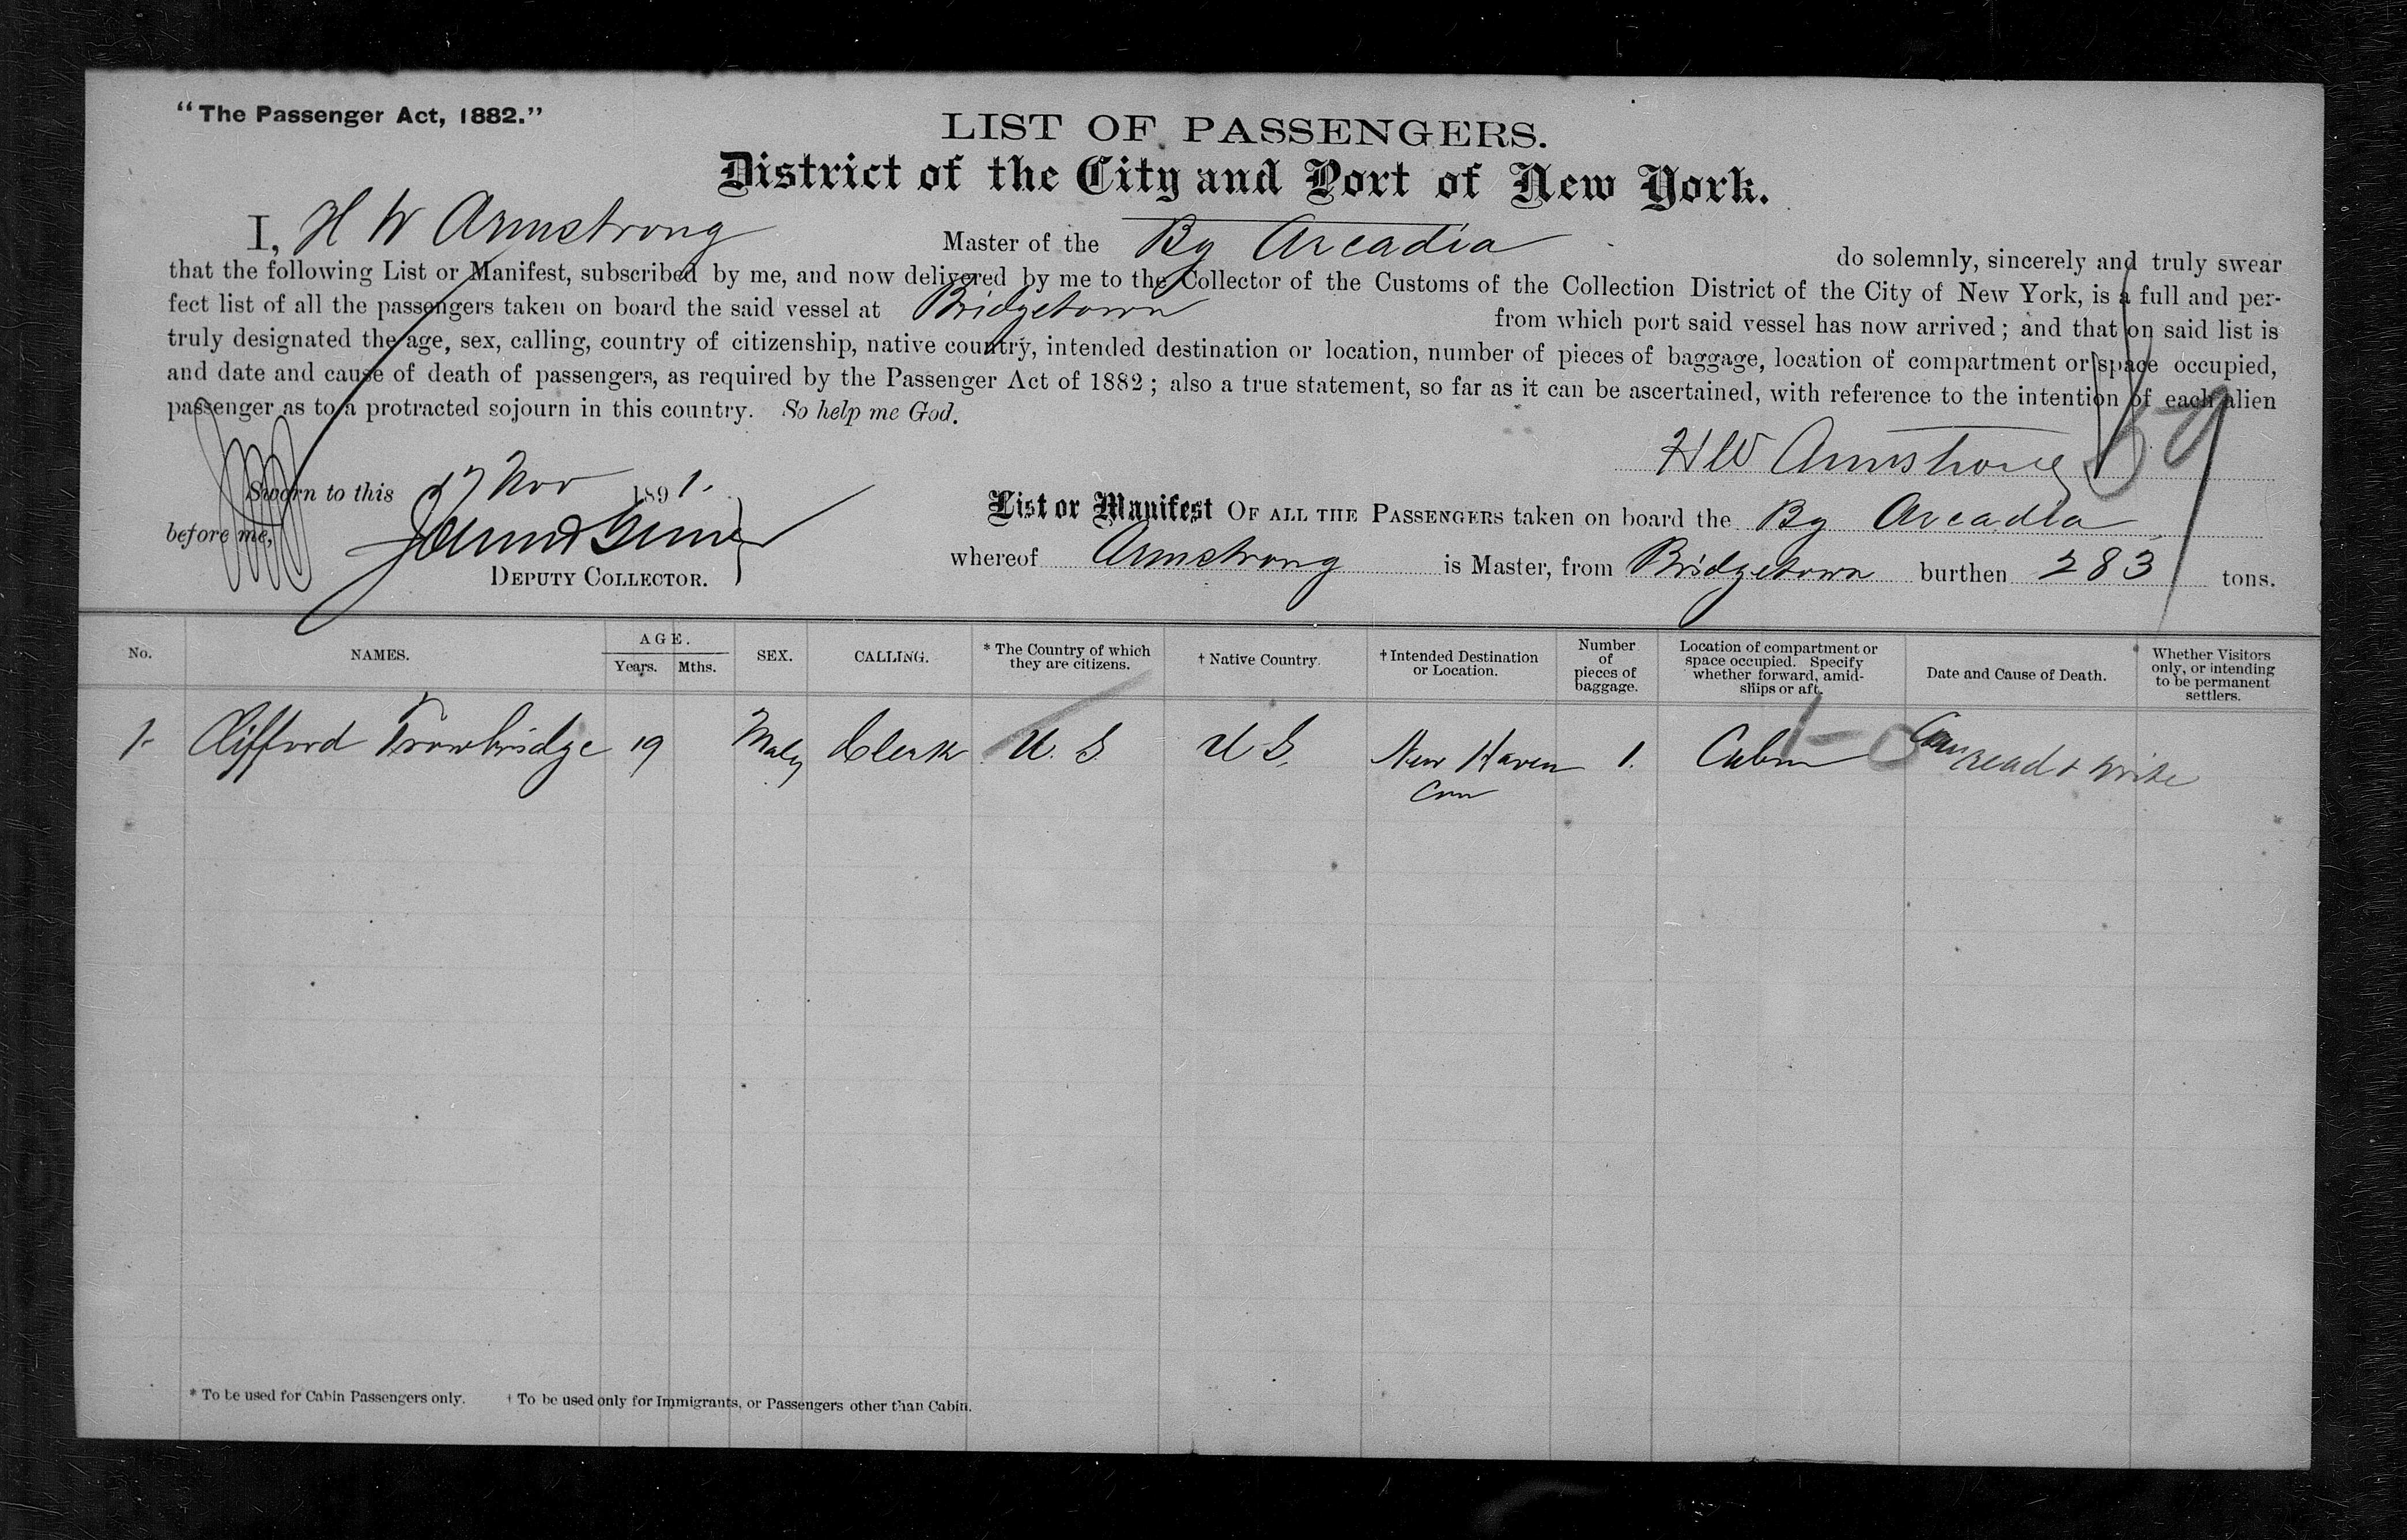 "The Passenger Act, 1882."
LIST OF PASSENGERS.
District of the City and Port of New York.
I, H W Armstrong Master of the Bg Arcadia do solemnly, sincerely and truly swear
that the following List or Manifest, subscribed by me, and now delivered by me to the Collector of the Customs of the Collection District of the City of New York, is a full and per-
fect list of all the passengers taken on board the said vessel at Bridgetown from which port said vessel has now arrived; and that on said list is
truly designated the age, sex, calling, country of citizenship, native country, intended destination or location, number of pieces of baggage, location of compartment or space occupied,
and date and cause of death of passengers, as required by the Passenger Act of 1882; also a true statement, so far as it can be ascertained, with reference to the intention of each alien
passenger as to a protracted sojourn in this country. So help me God.
HW Armstrong
59
Sworn to this 17 Nov 1891.
before me,
DEPUTY COLLECTOR.
List or Manifest OF ALL THE PASSENGERS taken on board the Bg Arcadia
whereof Armstrong is Master, from Bridgetown burthen 283 tons.
No. NAMES. AGE. Years. Mths. SEX. CALLING. * The Country of which they are citizens. † Native Country. † Intended Destination or Location. Number of pieces of baggage. Location of compartment or space occupied. Specify whether forward, amid-ships or aft. Date and Cause of Death. Whether Visitors only, or intending to be permanent settlers.
1- Clifford Trowbridge 19 Male Clerk U.S. U S. New Haven 1. Cabin 1-0 Can read + write
Conn
* To be used for Cabin Passengers only. † To be used only for Immigrants, or Passengers other than Cabin.